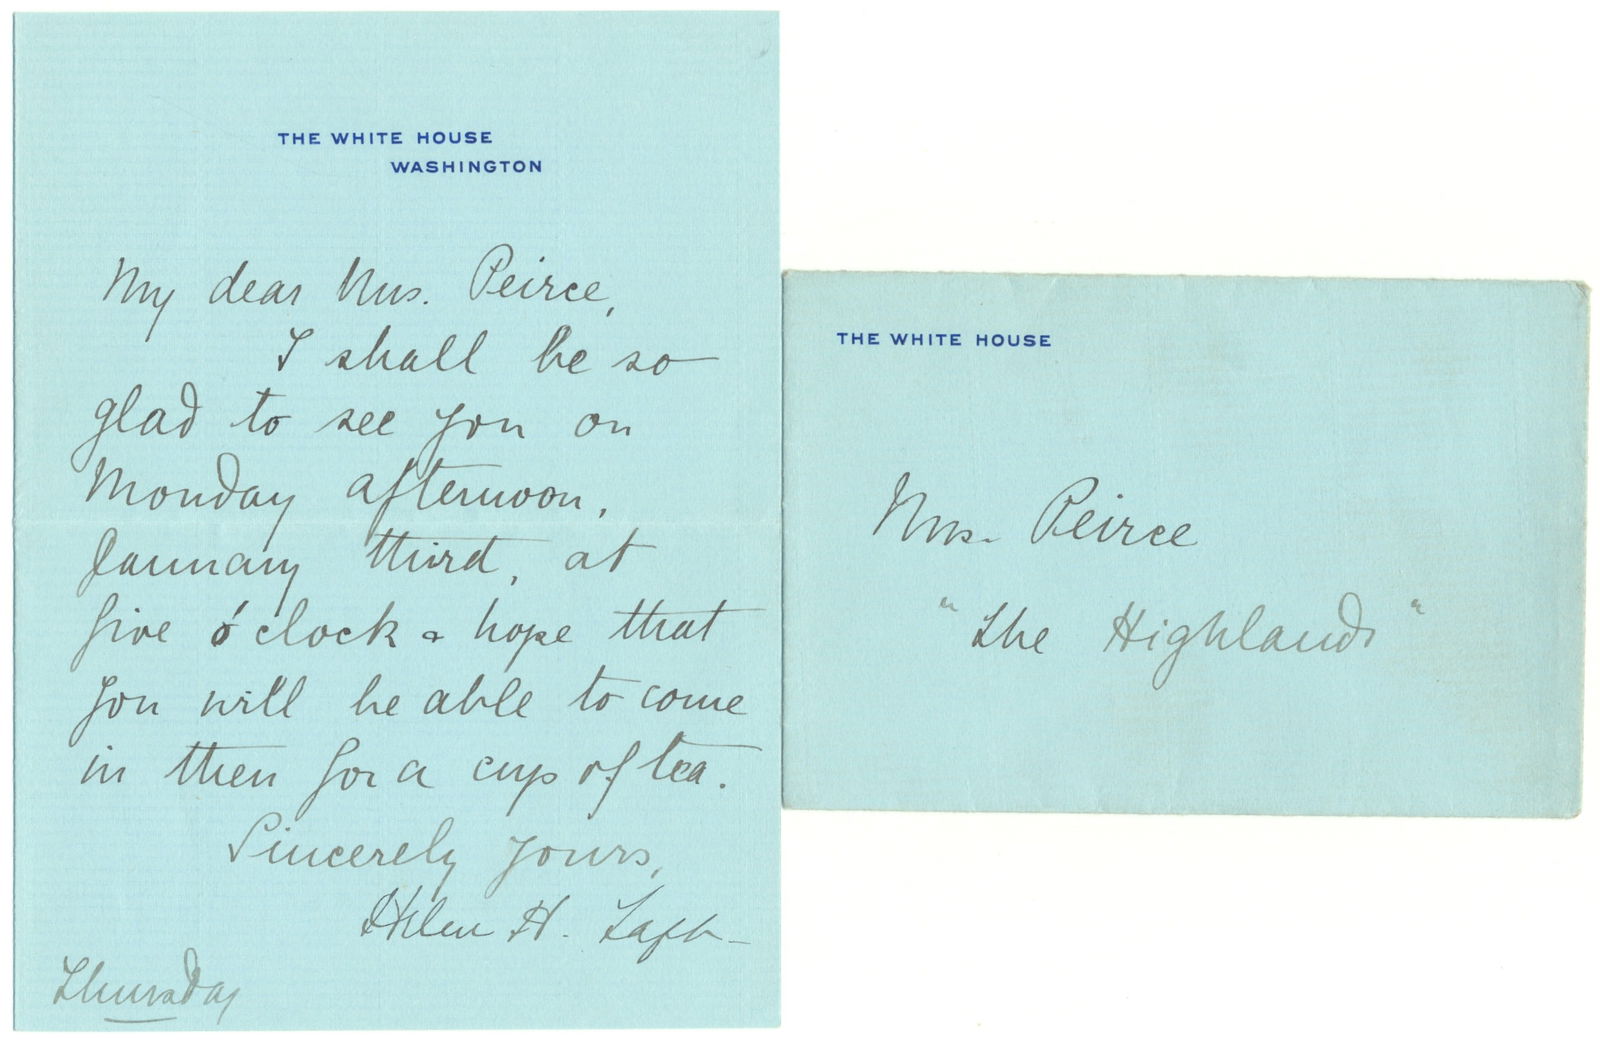 THE WHITE HOUSE
WASHINGTON
My dear Mrs. Peirce,
I shall be so
glad to see you on
Monday afternoon,
January third, at
five o'clock & hope that
you will be able to come
in then for a cup of tea.
Sincerely yours,
Helen H. Taft-
Thursday
THE WHITE HOUSE
Mrs. Peirce
"The Highlands"